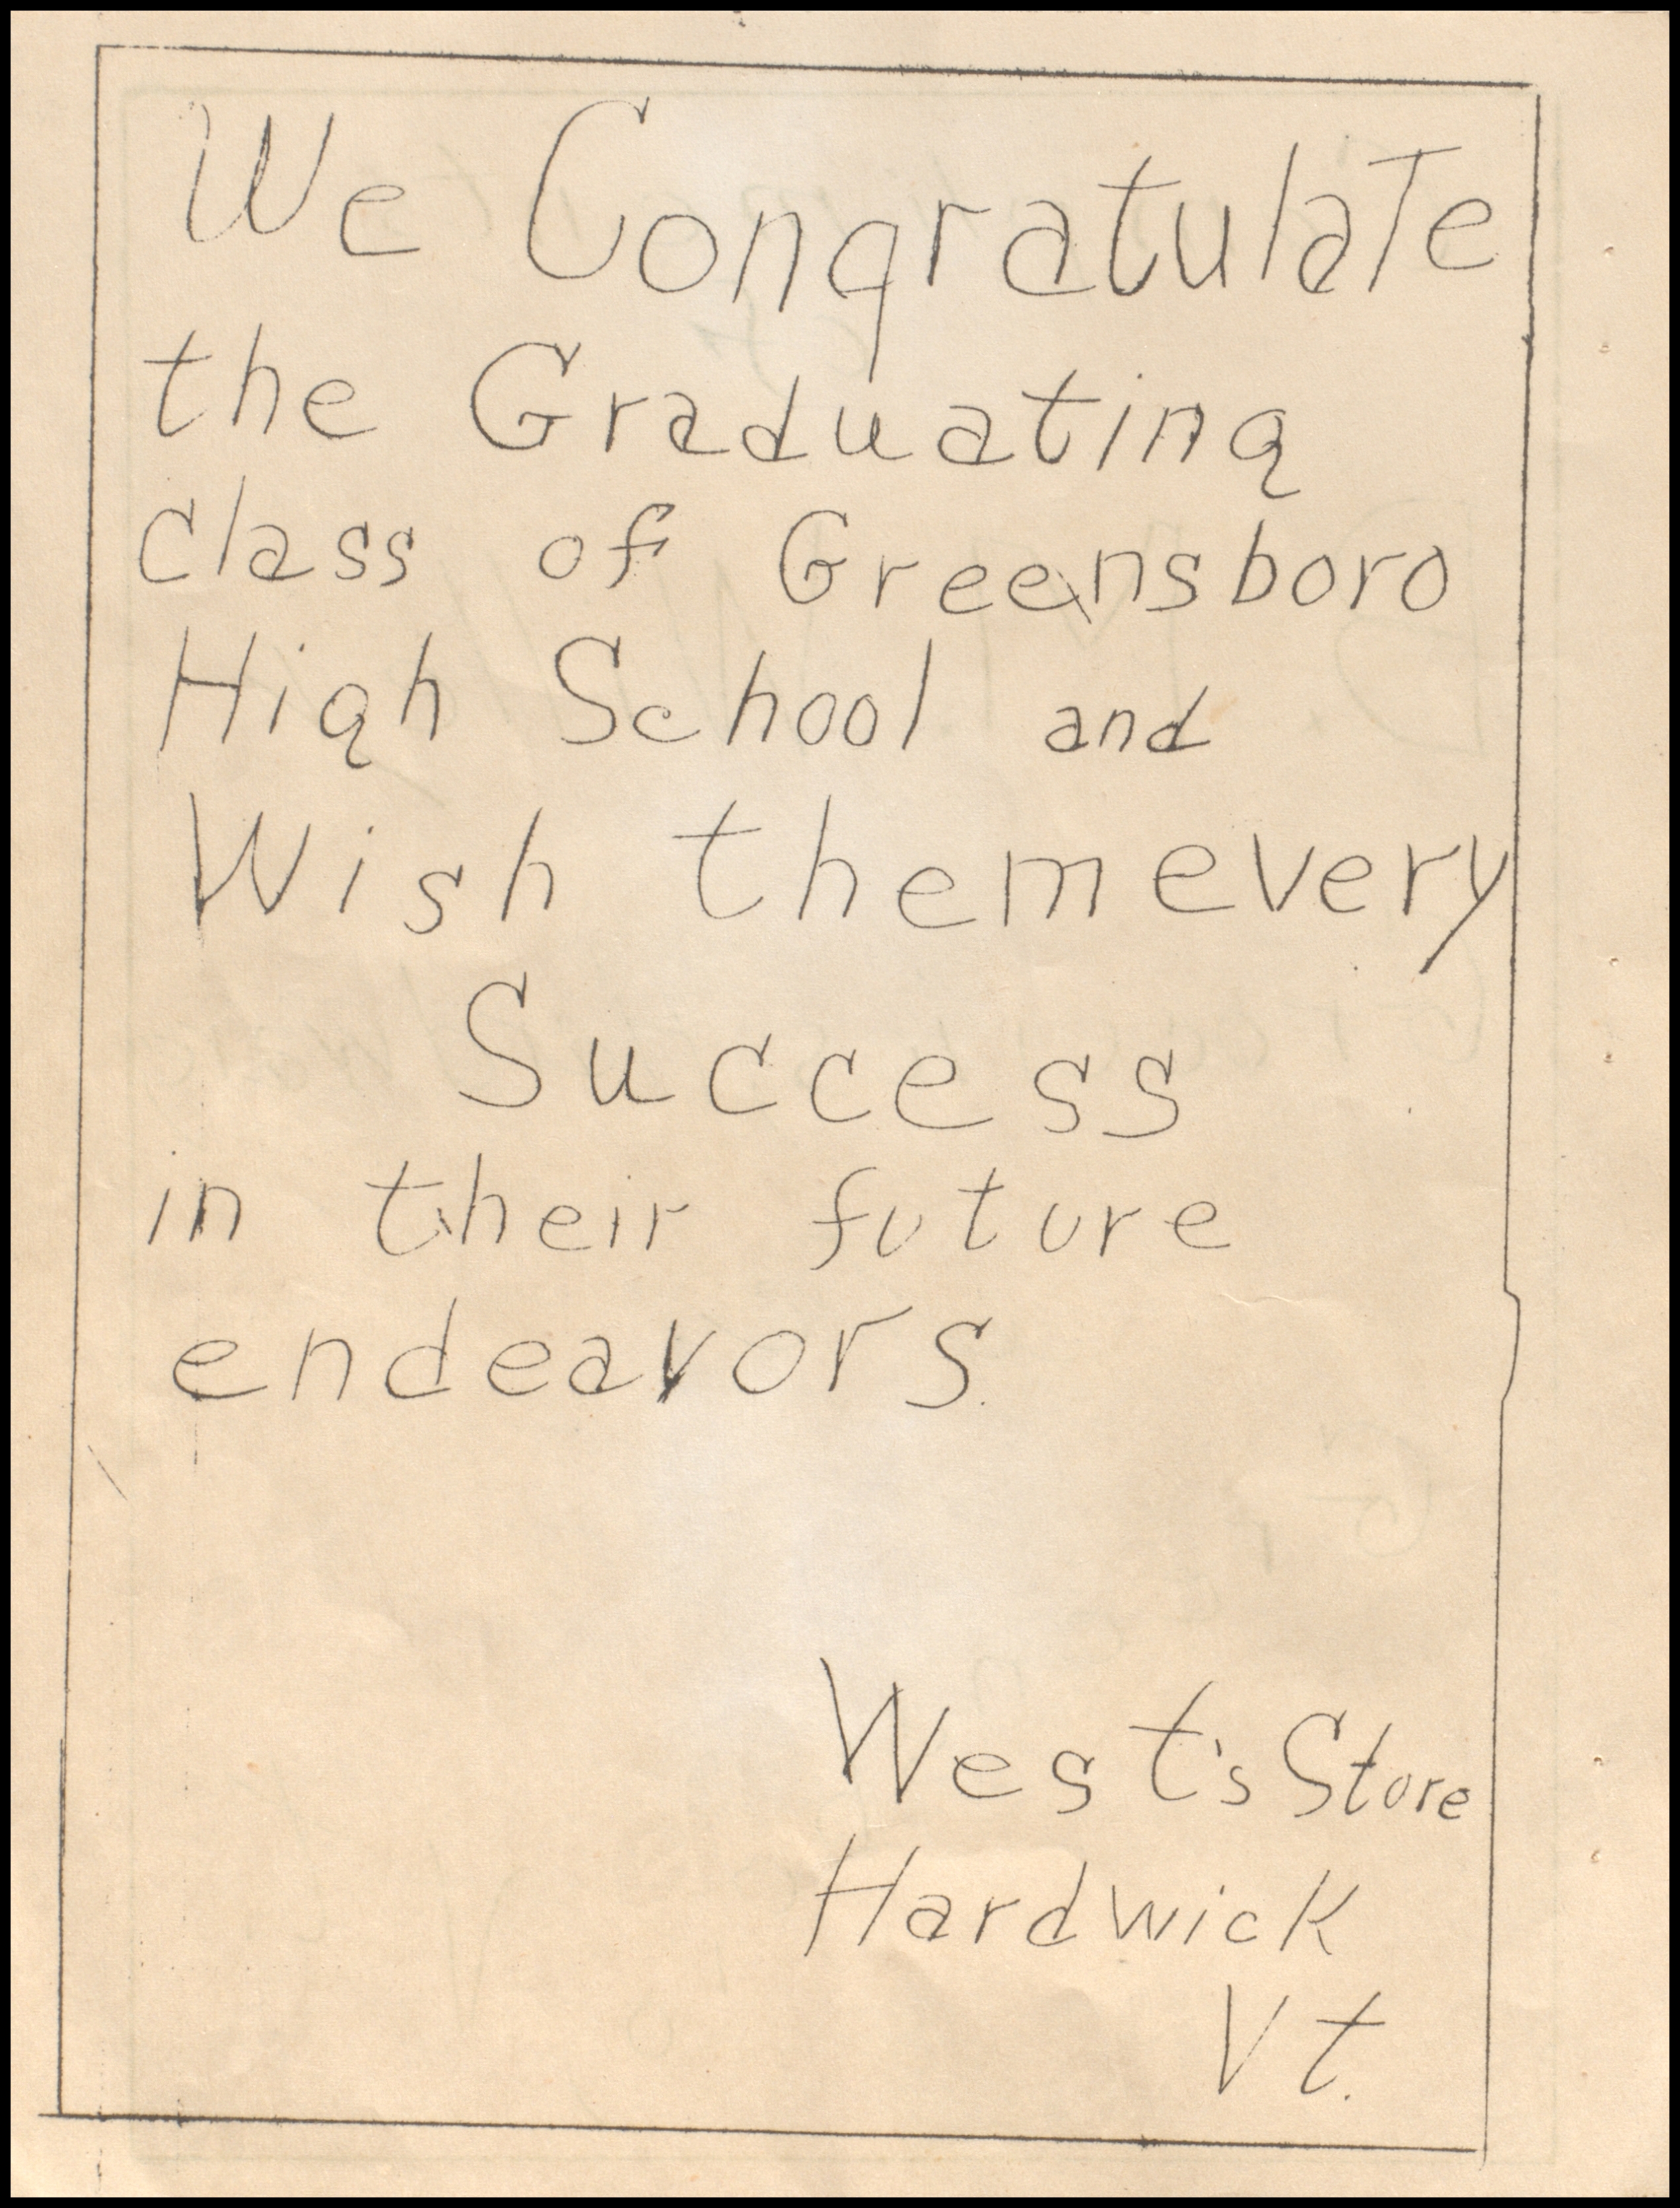 We Congratulate
the Graduating
class of Greensboro
High School and
Wish them every
Success
in their future
endeavors.
West's Store
Hardwick
Vt.